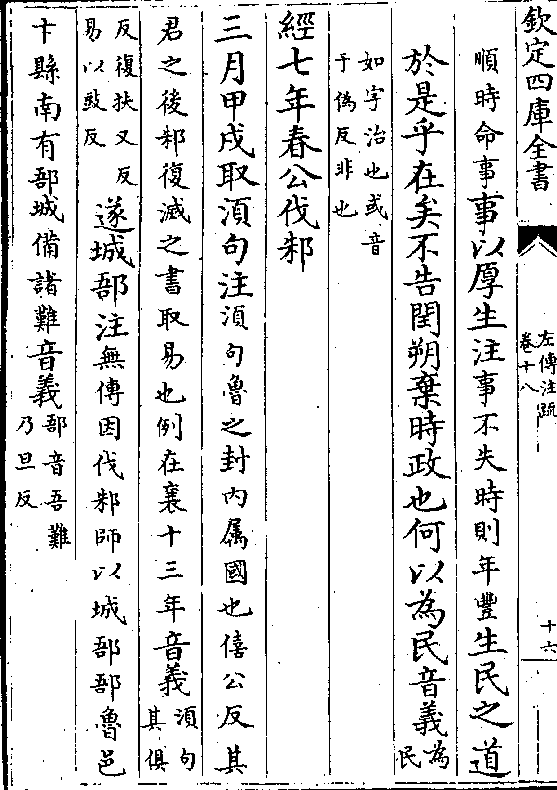 欽定四庫全書
左傳注疏
卷十八
十六
順時命事事以厚生注事不失時則年豐生民之道
於是乎在矣不告閏朔棄時政也何以為民音義為民
如字治也或音
于偽反非也
經七年春公伐邾
三月甲戌取須句注須句魯之封内屬國也僖公反其
君之後邾復滅之書取易也例在襄十三年音義須句其俱
反復扶又反
易以豉反
遂城郚注無傳因伐邾師以城郚郚魯邑
卞縣南有郚城備諸難音義郚音吾難
乃旦反